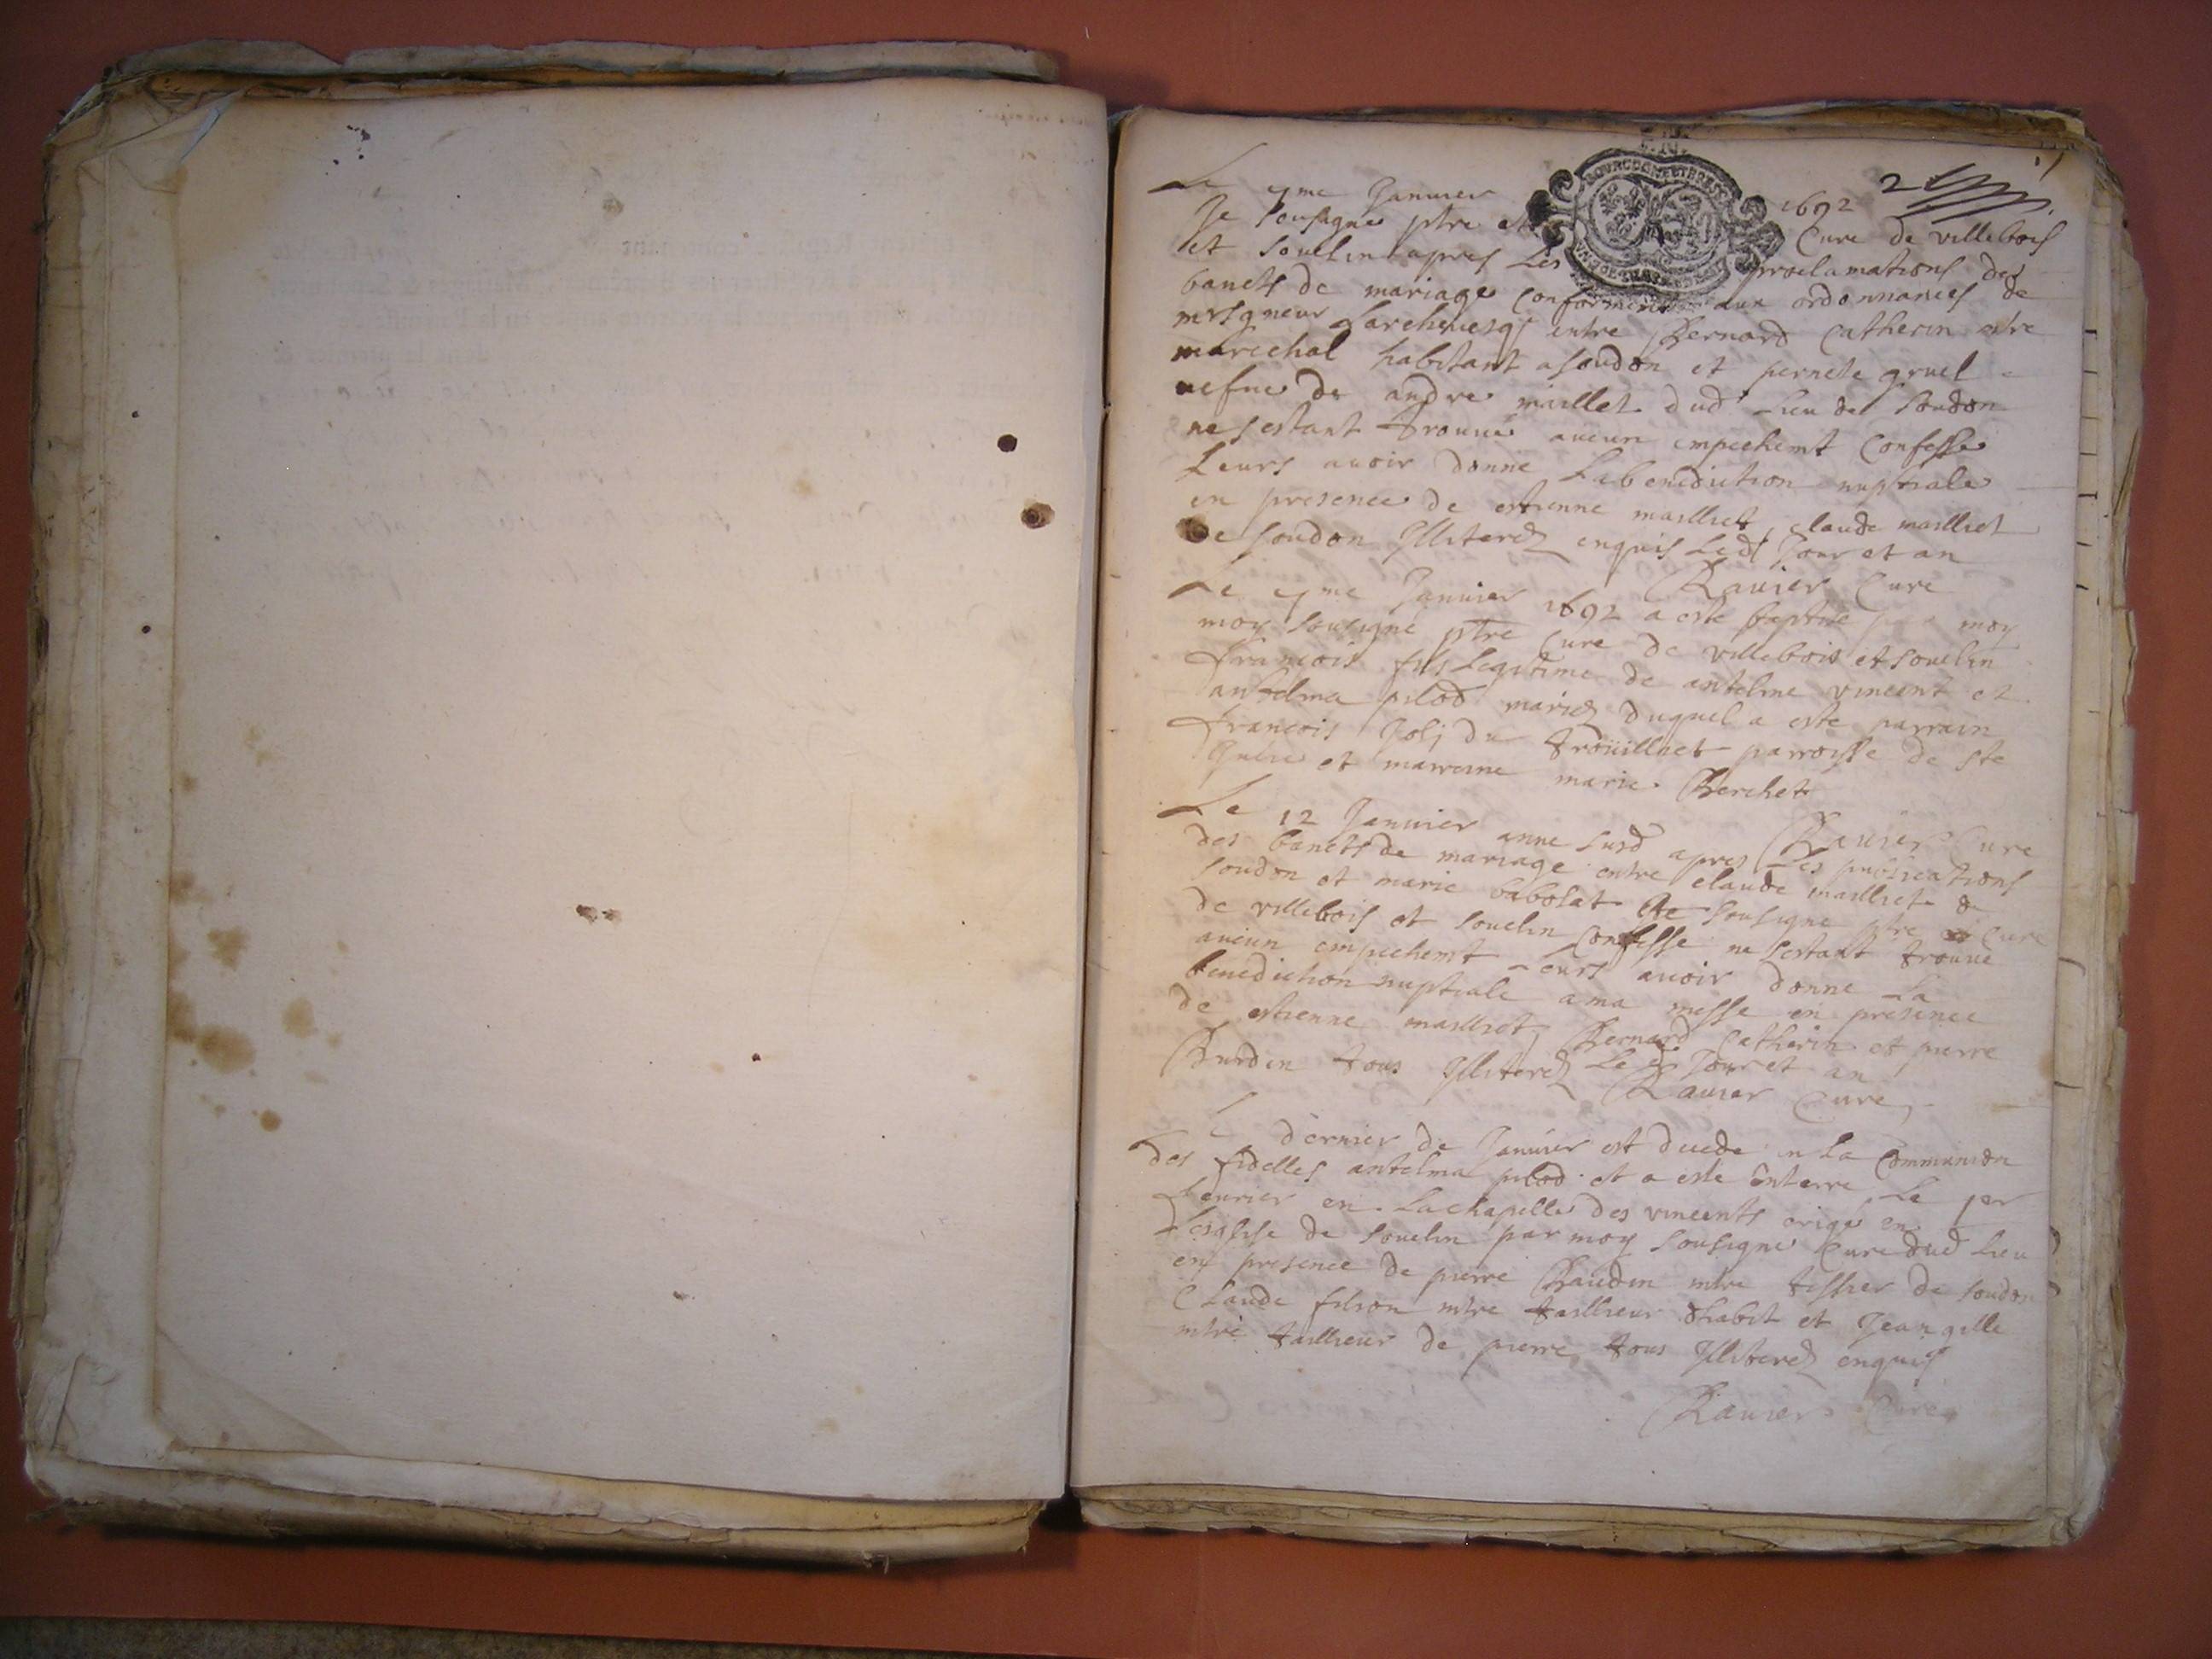 2
Le 9me Januier 1692
Je sousigne ptre et Cure de villebois
et souclin apres Les proclamations des
bancts de mariage Conformem aux ordonnances de
mrsgneur Larcheuesq entre Bernard Catherin mtre
marechal habitant a soudon et pernete gruel
uefue de andre maillet dud Lieu de soudon
ne sestant trouue aucun empechemt Confesse
Leurs auoir donne La benediction nuptiale
en presence de estienne mailliet, claude mailliet
de soudon Illiterez enquis Led Jour et an
Rauier Cure
Le 9me Januier 1692 a este baptise moy
moy sousigne ptre Cure de villebois et souclin
francois fils Legitime de antelme vincent et
antelma pilod mariez duquel a este parrain
francois Joli du trouilliet parroisse de ste
Julie et marreine marie Berchet
Rauier Cure
Le 12 Januier anne susd apres Les publications
des bancts de mariage entre claude mailliet de
soudon et marie babolat Je sousigne ptre Cure
de villebois et souclin Confesse ne sestant trouue
aucun empechemt Leurs auoir donne La
benediction nuptiale a ma messe en presence
de estienne mailliet, Bernard Catherin et pierre
Burdin tous Illiterez Led Jour et an
Rauier Cure
Le dernier de Januier est decede en La Communion
des fidelles antelma pilod et a este Enterre Le 1er
feurier en La chapelle des vincents erige en
Leglise de souclin par moy sousigne Cure dud Lieu
en presence de pierre Baudin mtre tissier de soudon
Claude filion mtre tailleur dhabit et Jean gille
mtre tailleur de pierre tous Illiterez enquis
Rauier Cure